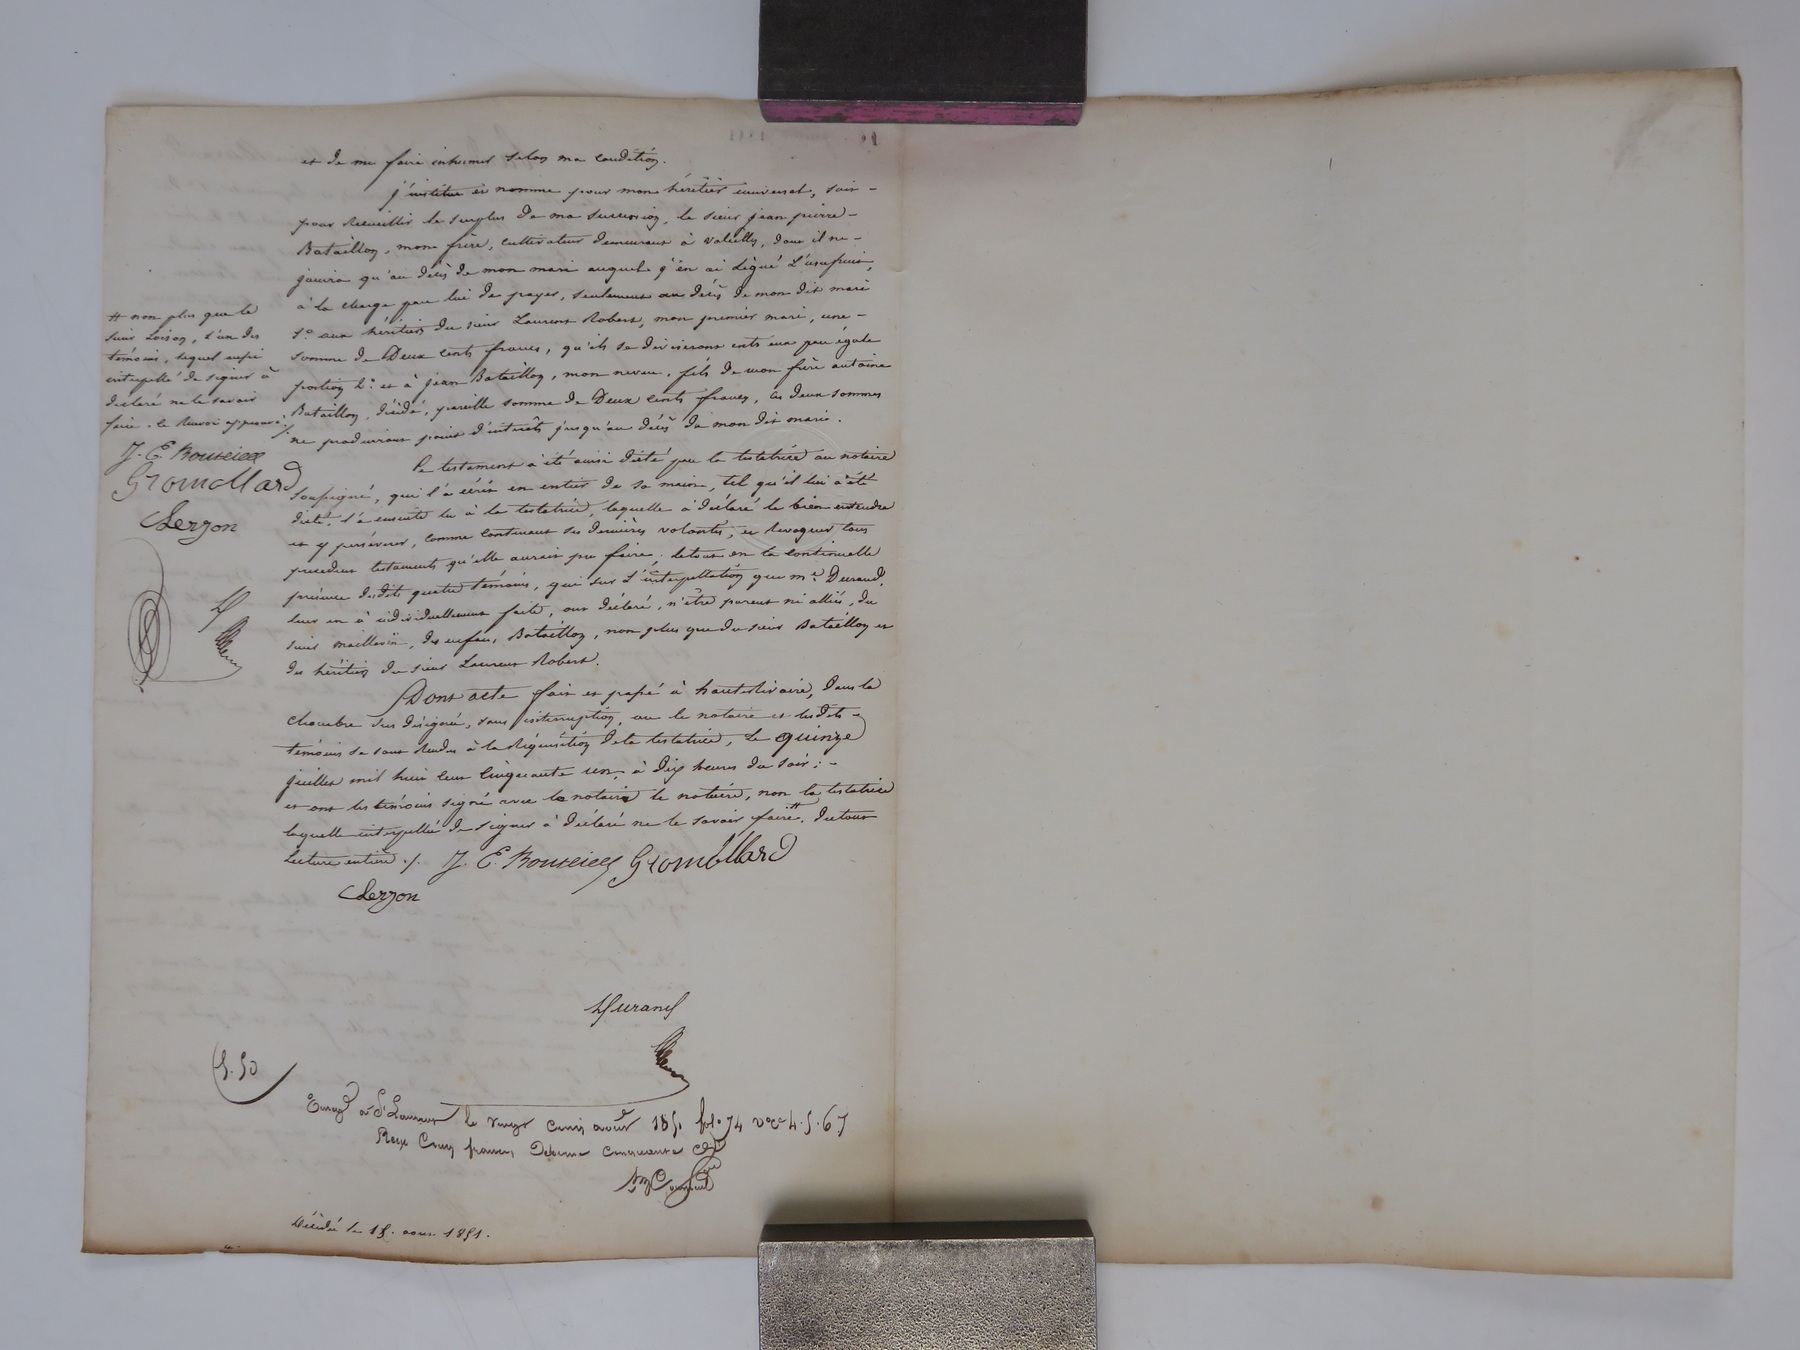 et de me faire inhumer selon ma condition.
j'institue et nomme pour mon héritier universel, soit -
pour recueillir le surplus de ma succession, le sieur jean pierre -
Bataillon, mon frère, cultivateur demeurant à valeille, dont il ne -
jouira qu'au décès de mon mari auquel j'en ai légué l'usufruit,
à la charge par lui de payer, seulement au décès de mon dit mari
1° aux héritiers du sieur Laurent Robert, mon premier mari, une -
somme de Deux cents francs, qu'ils se diviseront entr'eux par égale
portion 2° et à jean Bataillon, mon neveu, fils de mon frère antoine
Bataillon, décédé, pareille somme de Deux cents francs, les deux sommes
ne produiront point d'intérêts jusqu'au décès de mon dit mari.
Ce testament a été ainsi dicté par la testatrice au notaire
soussigné, qui l'a écrit en entier de sa main, tel qu'il lui a été
dicté, l'a ensuite lu à la testatrice, laquelle a déclaré le bien entendre
et y persévérer, comme contenant ses dernières volontés, et révoquer tous
précédens testaments qu'elle aurait pu faire. le tout en la continuelle
présence desdits quatre témoins, qui sur l'interpellation que me Durand,
leur en a individuellement faite, ont déclaré, n'être parens ni alliés, du
sieur, des enfans Bataillon, non plus que du sieur Bataillon et
des héritiers du sieur Laurent Robert.
Dont acte fait et passé à hauterivoire, dans la
chambre sus désignée, sans interruption, où le notaire et lesdits -
témoins se sont rendus à la réquisition de la testatrice, le quinze
juillet mil huit cent cinquante un, à dix heures du soir; -
et ont les témoins signé avec le notaire le notaire, non la testatrice
laquelle interpellée de signer a déclaré ne le savoir faire #. du tout
lecture entière ./. J. E. Gromollard
Clerzon
# non plus que le
sieur Loison, l'un des
témoins, lequel aussi
interpellé de signer à
déclaré ne le savoir
faire. le renvoi approuvé ./.
J. E.
Gromollard
Clerzon
D
Durand
5.50
Enregé à St Laurent le vingt cinq août 1851 fol 74 vo Ces 4.5.6.7
Reçu Cinq francs Décime cinquante ces
Décédé le 15. août 1851.